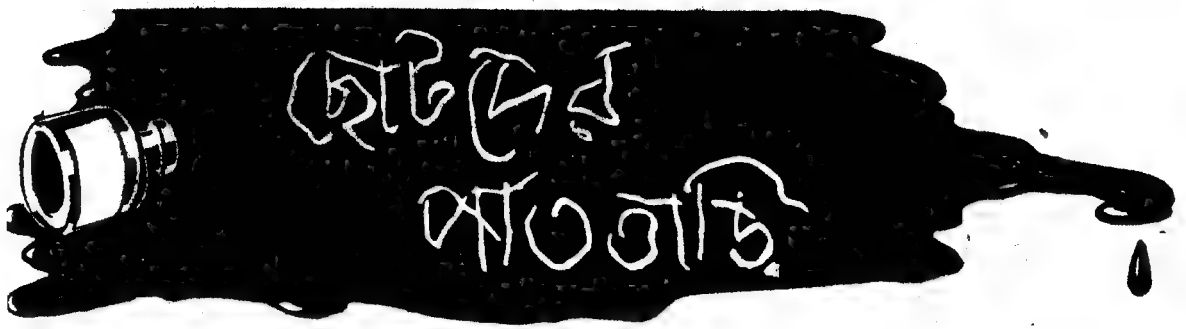 ছোটদের
পাততাড়ি